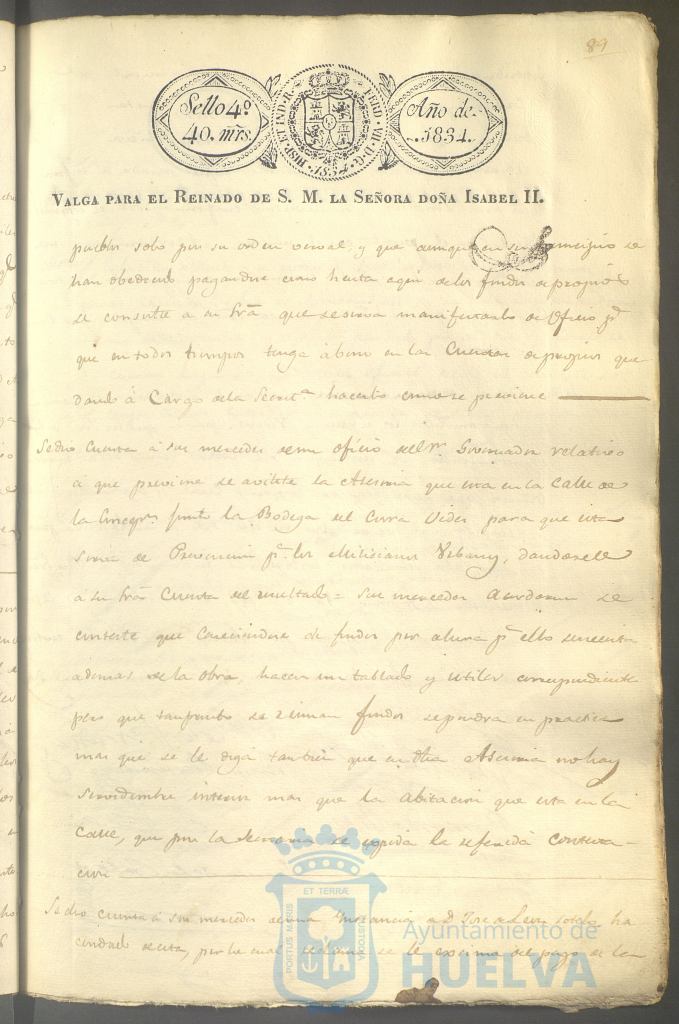 89
Sello 4º
40. mrs.
HISP. ET IND. R. FERD. VII D. G.
1834.
Año de
1834.
VALGA PARA EL REINADO DE S. M. LA SEÑORA DOÑA ISABEL II.
pueblos solo por su orden verval, y que aunque en su principio se
han obedecido pagandose como hasta aqui de los fondos de propios
se consulte a su Sria que se sirva manifestarlo de Oficio pª
que en todos tiempos tenga abono en las Cuentas de propios que
dando á Cargo de la Secretª hacerlo como se previene
Se dio Cuenta á sus mercedes de un oficio del Sr. Governador relativo
a que previene se avilite la Atesania que esta en la Calle de
la Concepn. junto la Bodega del Cura para que esta
sirva de Prevencion pª los Milicianos Urbanos, dandosele
a su Sria Cuenta del resultado = sus mercedes Acordaron se
conteste que Careciendose de fondos por ahora pª ello se necesita
ademas de la obra, hacer un tablado y utiles correspondientes
pero que tan pronto se reunan fondos se pondra en practica
mas que se le diga tambien que en dha no hay
interior mas que la abitacion que esta en la
Calle, que por la Secretaria se espida la referida contesta-
cion
Se dio cuenta á sus mercedes de una Instancia de D. Jose de Leon Sotelo ha
cendado de esta, por la cual se le exima del pago de los
PORTUS MARIS ET TERRÆ CUSTODIA
Ayuntamiento de
HUELVA